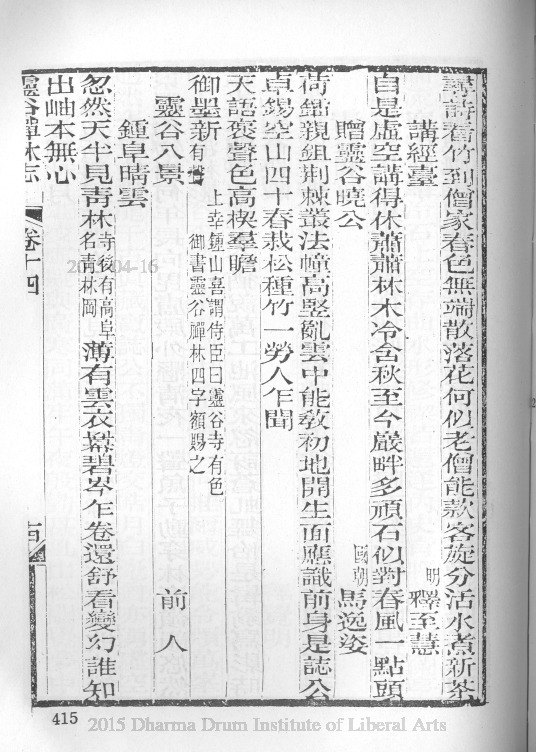 尋詩看竹到僧家春色無端散落花何似老僧能款客旋分活水煮新茶
講經臺
明
釋至慧
自是虛空講得休蕭蕭林木冷含秋至今巖畔多頑石似對春風一點頭
贈靈谷曉公
國朝
馬逸姿
荷鍤親鉏荆棘叢法幢高竪亂雲中能教初地開生面應識前身是誌公
卓錫空山四十春栽松種竹一勞人乍聞
天語褒聲色高楔羣瞻
御墨新
上幸鍾山喜謂侍臣曰靈谷寺有色
有聲
御書靈谷禪林四字額賜之
靈谷八景
前人
鍾阜晴雲
忽然天半見靑林
寺後有高阜
名靑林岡
薄有雲衣羃碧岑乍卷還舒看變幻誰知
出岫本無心
靈谷禪林志
卷十四
古
415
2015 Dharma Drum Institute of Liberal Arts